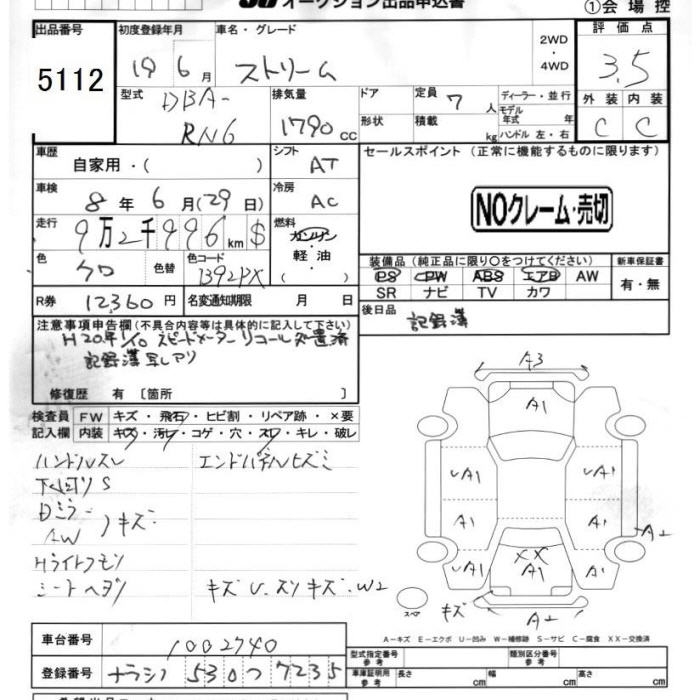 オークション出品申込書
①会場控
出品番号
5112
初度登録年月
19 6月
車名・グレード
ストリーム
2WD
・
4WD
評価点
3.5
外装 内装
C C
型式
DBA-
RN6
排気量
1790cc
ドア
形状
定員 7人
積載 kg
ディーラー・並行
モデル年式 年
ハンドル 左・右
車歴
自家用・( )
シフト
AT
車検
8年6月(29日)
冷房
AC
走行
9万2千996km $
燃料
ガソリン・
軽油・
( )
色
クロ
色替
色コード
B92PX
R券 12360円
名変通知期限 月 日
セールスポイント(正常に機能するものに限ります)
NOクレーム・売切
装備品(純正品に限り○をつけてください)
PS PW ABS エアB AW
SR ナビ TV カワ
新車保証書
有・無
後日品
記録簿
注意事項申告欄(不具合内容等は具体的に記入して下さい)
H20年1/10 スピードメーター リコール処置済
記録簿 写しアリ
修復歴 有〔箇所 〕
検査員記入欄
FW キズ・飛石・ヒビ割・リペア跡・×要
内装 キズ・汚レ・コゲ・穴・スレ・キレ・破レ
ハンドルスレ
エンドパネルヒズミ
下回りS
Dミラー
AW
キズ
Hライトクモリ
シートヘタリ
キズ U. スリキズ. W2
A3
A1
UA1
A1
UA1
UA1
A1
A1
A2
XX
A1
A1
スペア
キズ
A2
A-キズ E-エクボ U-凹み W-補修跡 S-サビ C-腐食 XX-交換済
車台番号
1002740
登録番号
ナラシ 530 つ 7235
型式指定番号
参考
類別区分番号
参考
車庫証明用
参考
長さ cm
幅 cm
高さ cm